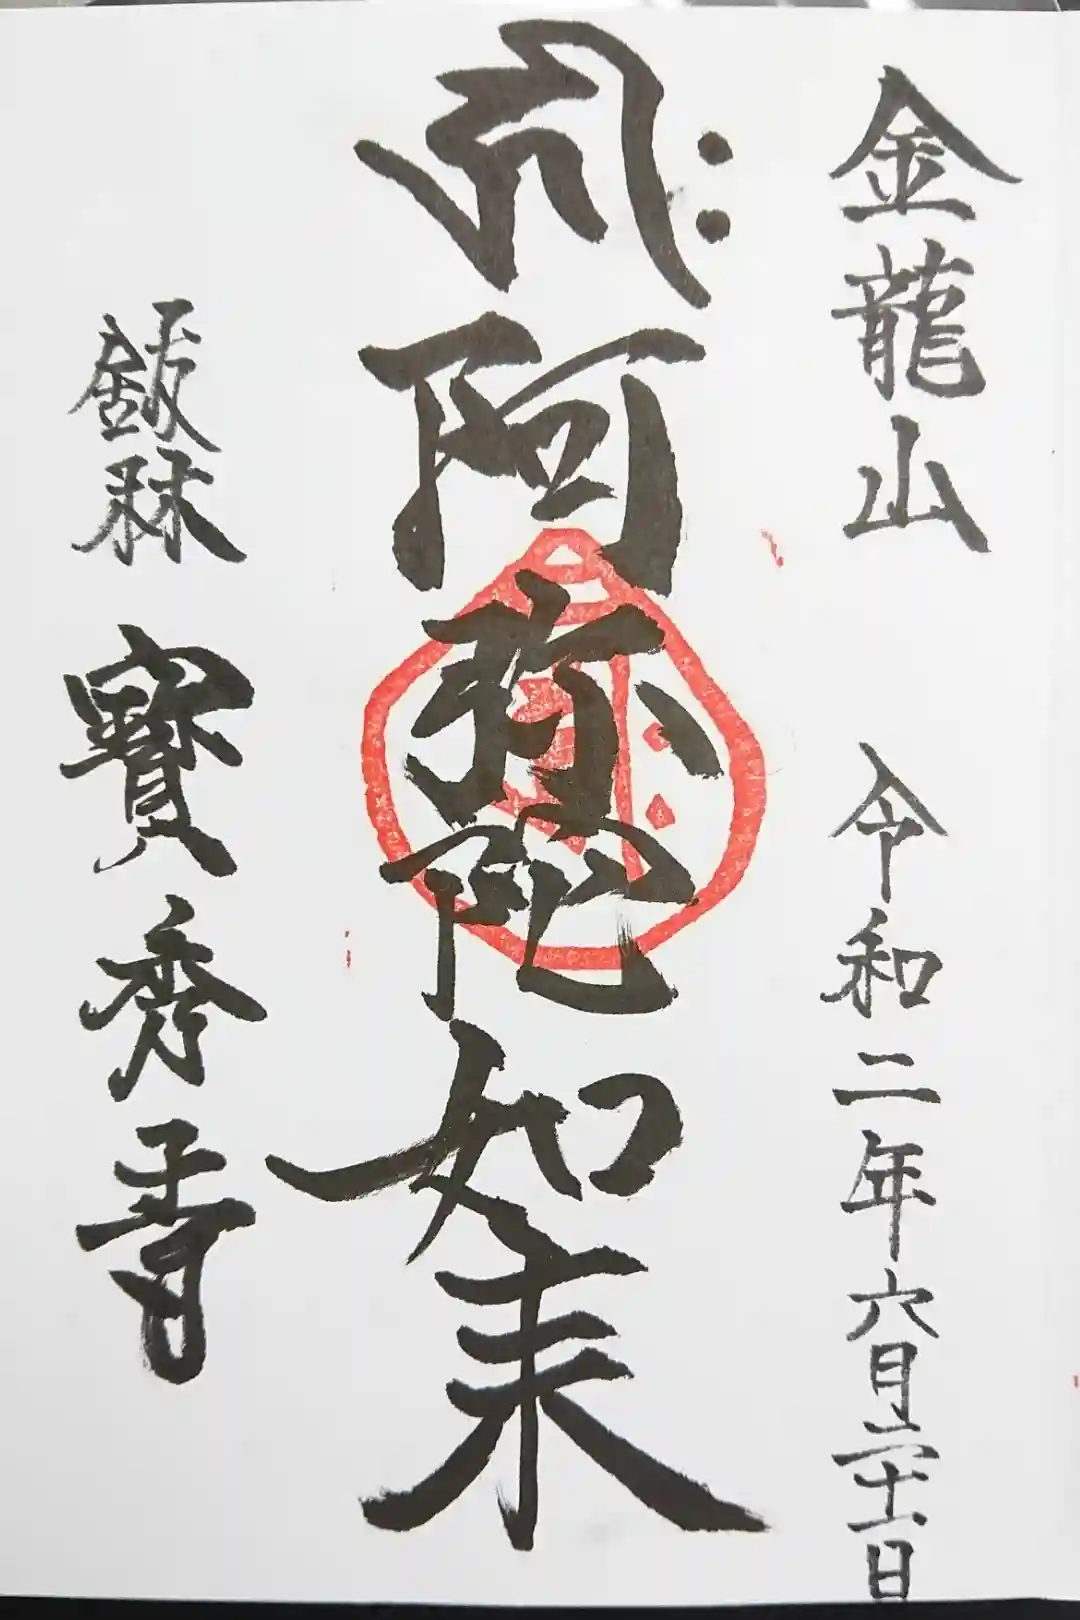 金龍山 令和二年六月二十一日
ह्रीः
阿弥陀如来
寶秀寺